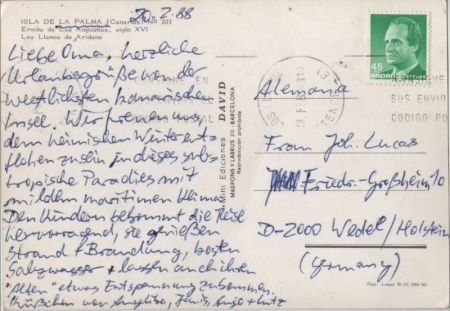 ISLA DE LA PALMA (Canarias) Nº 201
Ermita de Las Angustias, siglo XVI
Los Llanos de Aridane
20.2.88
Liebe Oma, herzliche
Urlaubsgrüße von der
westlichsten kanarischen
Insel. Wir freuen uns,
dem heimischen Winter ent-
flohen zu sein in dieses sub-
tropische Paradies mit
milden maritimen Klima.
Den Kindern bekommt die Reise
hervorragend, sie genießen
Strand + Brandung,
Salzwasser + lassen auch ihren
"Alten" etwas Entspannung zukommen.
Grüßchen von Angelika, Ingo + Lutz
Mini Ediciones DAVID
BARCELONA
Reproducción prohibida
45
España
SUS ENVIO
CODIGO PO
Alemania
Frau Joh. Lucas
Friedr.-Großheim 10
D-2000 Wedel/Holstein
(Germany)
Dep. Legal B-